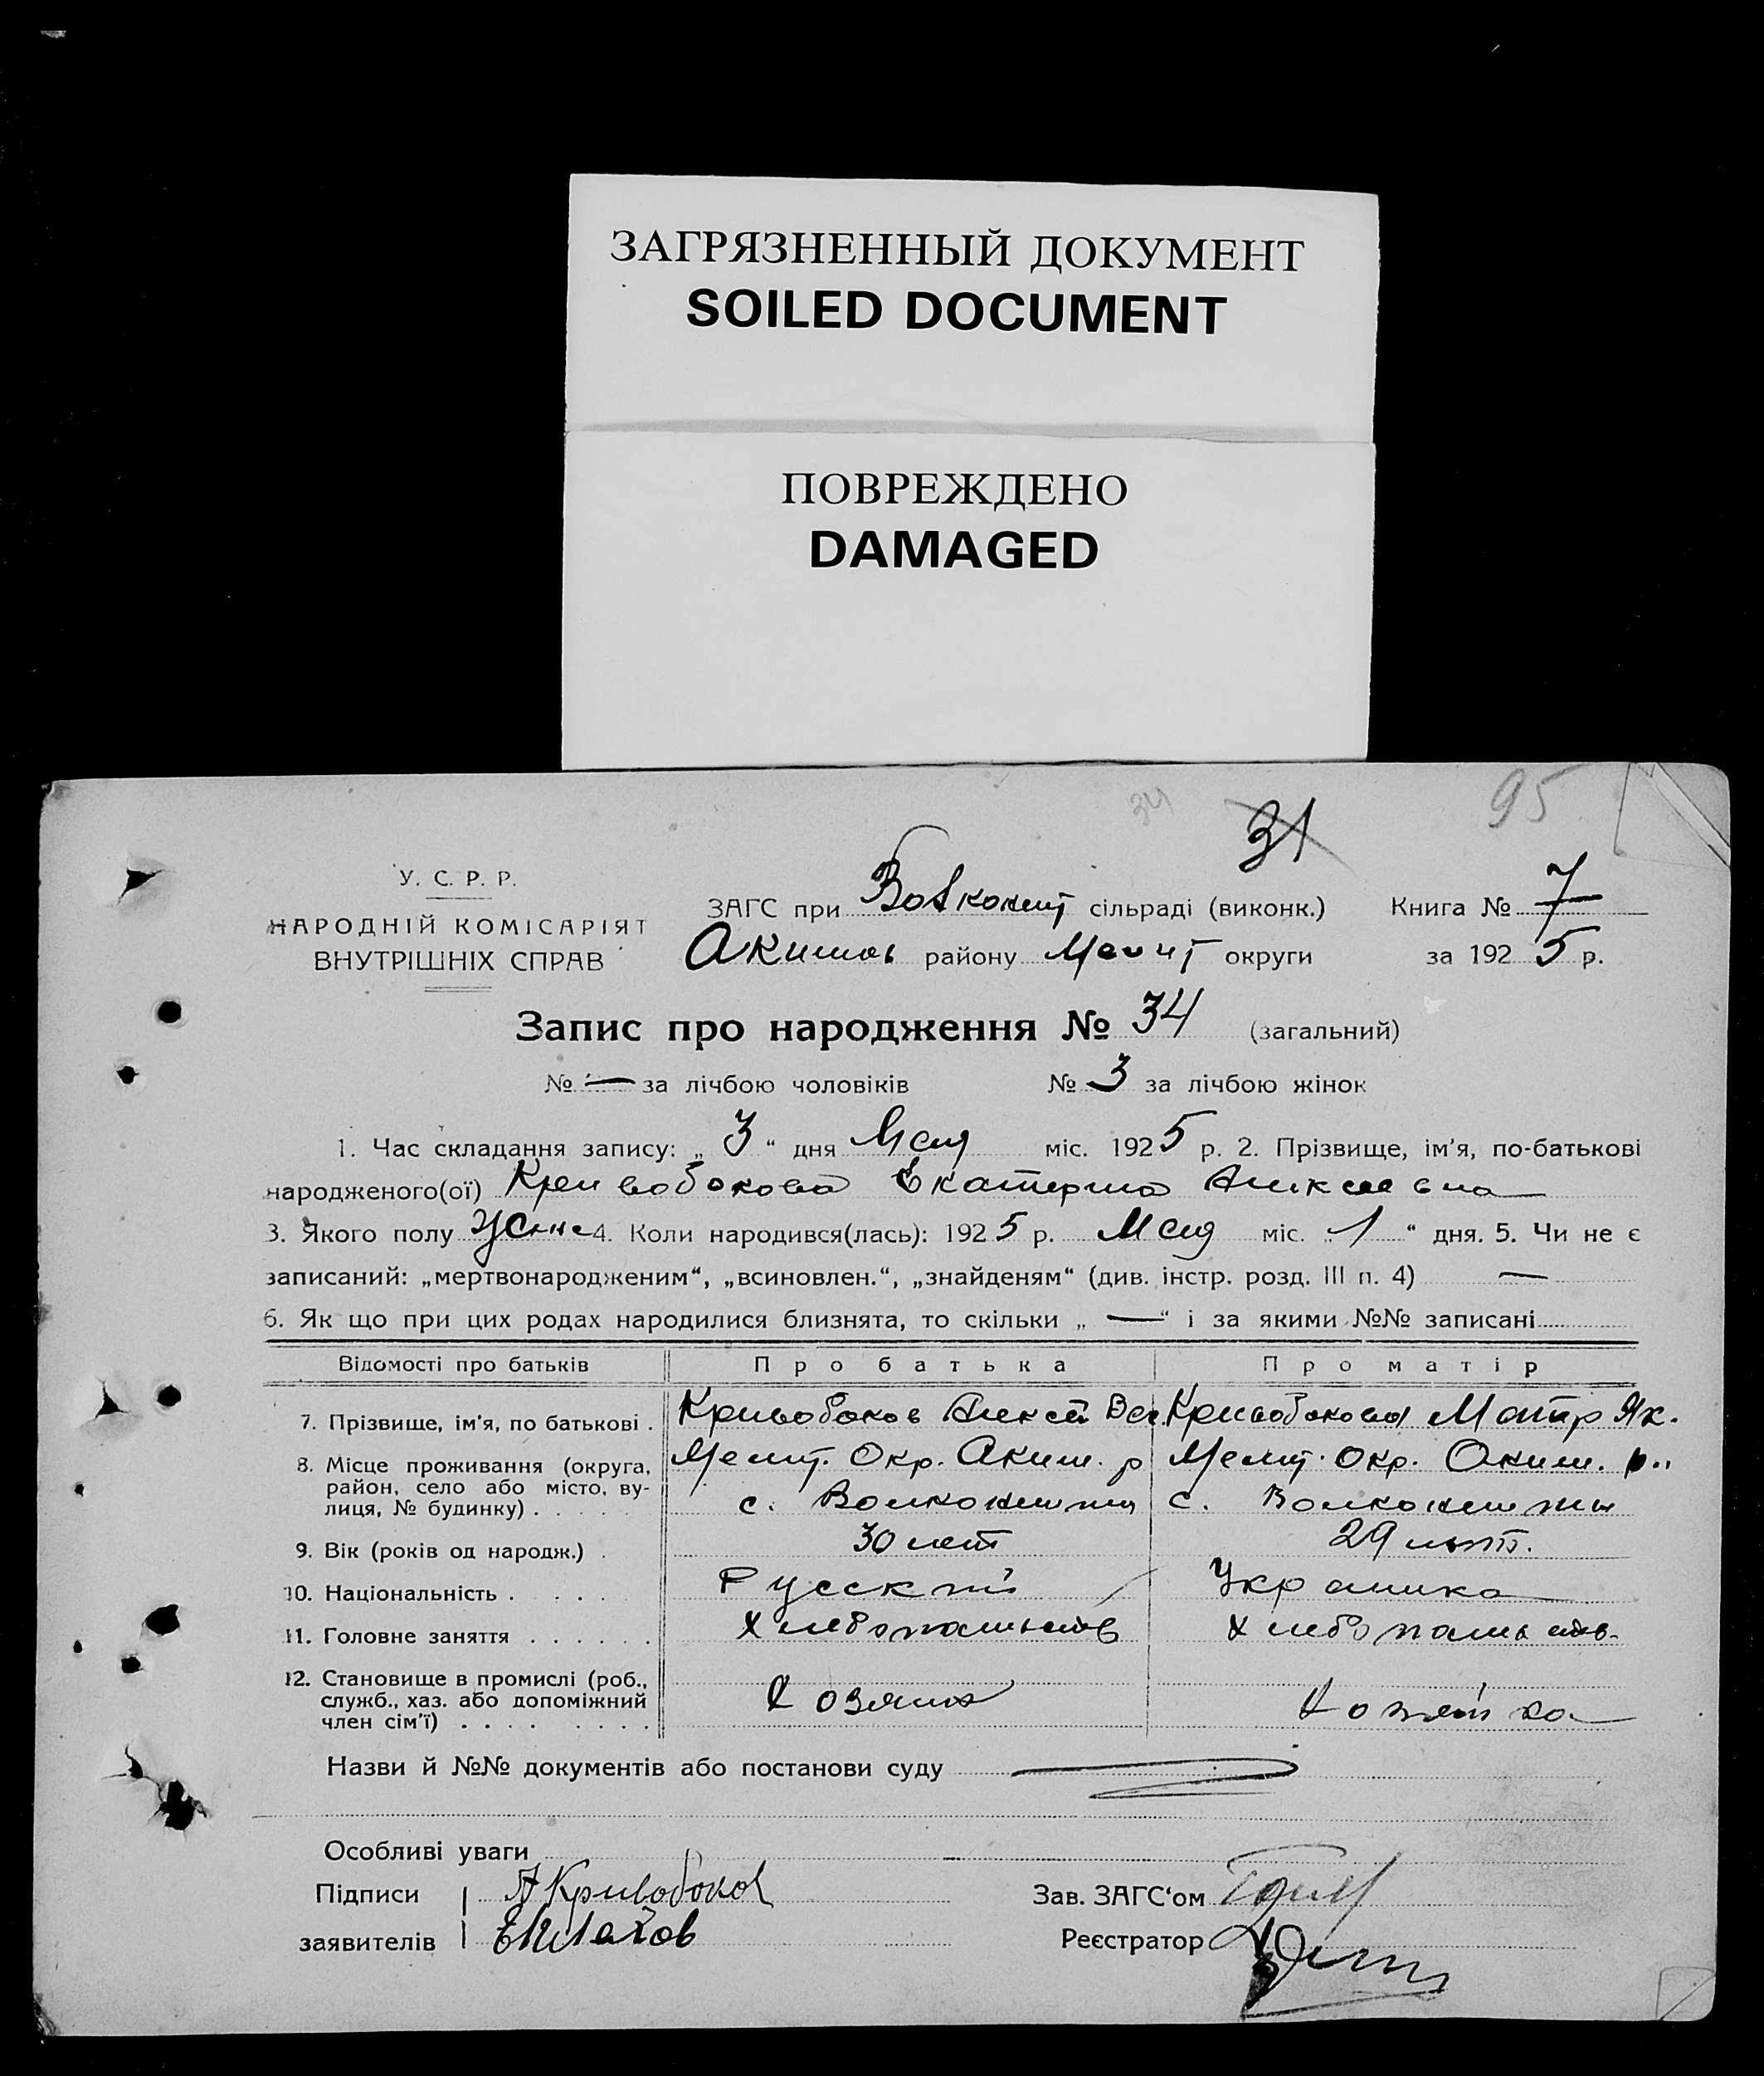 ЗАГРЯЗНЕННЫЙ ДОКУМЕНТ
SOILED DOCUMENT
ПОВРЕЖДЕНО
DAMAGED
34 31 95
У. С. Р. Р.
НАРОДНІЙ КОМІСАРІЯТ
ВНУТРІШНІХ СПРАВ
ЗАГС при сільраді (виконк.) Книга № 7
Акимов району Мелит округи за 1925 р.
Запис про народження № 34 (загальний)
№ — за лічбою чоловіків № 3 за лічбою жінок
1. Час складання запису: „ 3 “ дня Мая міс. 1925 р. 2. Прізвище, ім’я, по-батькові
народженого(ої) Кривобокова Екатерина Алексеевна
3. Якого полу Женс 4. Коли народився(лась): 1925 р. Мая міс. „ 1 “ дня. 5. Чи не є
записаний: „мертвонародженим“, „всиновлен.“, „знайденям“ (див. інстр. розд. III п. 4) —
6. Як що при цих родах народилися близнята, то скільки „ — “ і за якими №№ записані
Відомості про батьків Про батька Про матір
7. Прізвище, ім’я, по батькові . Кривобоков Алексей Вас. Кривобокова Матр Як.
8. Місце проживання (округа, район, село або місто, вулиця, № будинку) . Мелит. Окр. Аким. р Мелит. Окр. Аким. р.
с. с.
9. Вік (років од народж.) . 30 лет 29 лет.
10. Національність . Русский Украинка
11. Головне заняття . Хлебопашеств Хлебопашеств.
12. Становище в промислі (роб., служб., хаз. або допоміжний член сім’ї) . Хозяин Хозяйка
Назви й №№ документів або постанови суду
Особливі уваги
Підписи А Кривобоков Зав. ЗАГС‘ом
заявителів Реєстратор